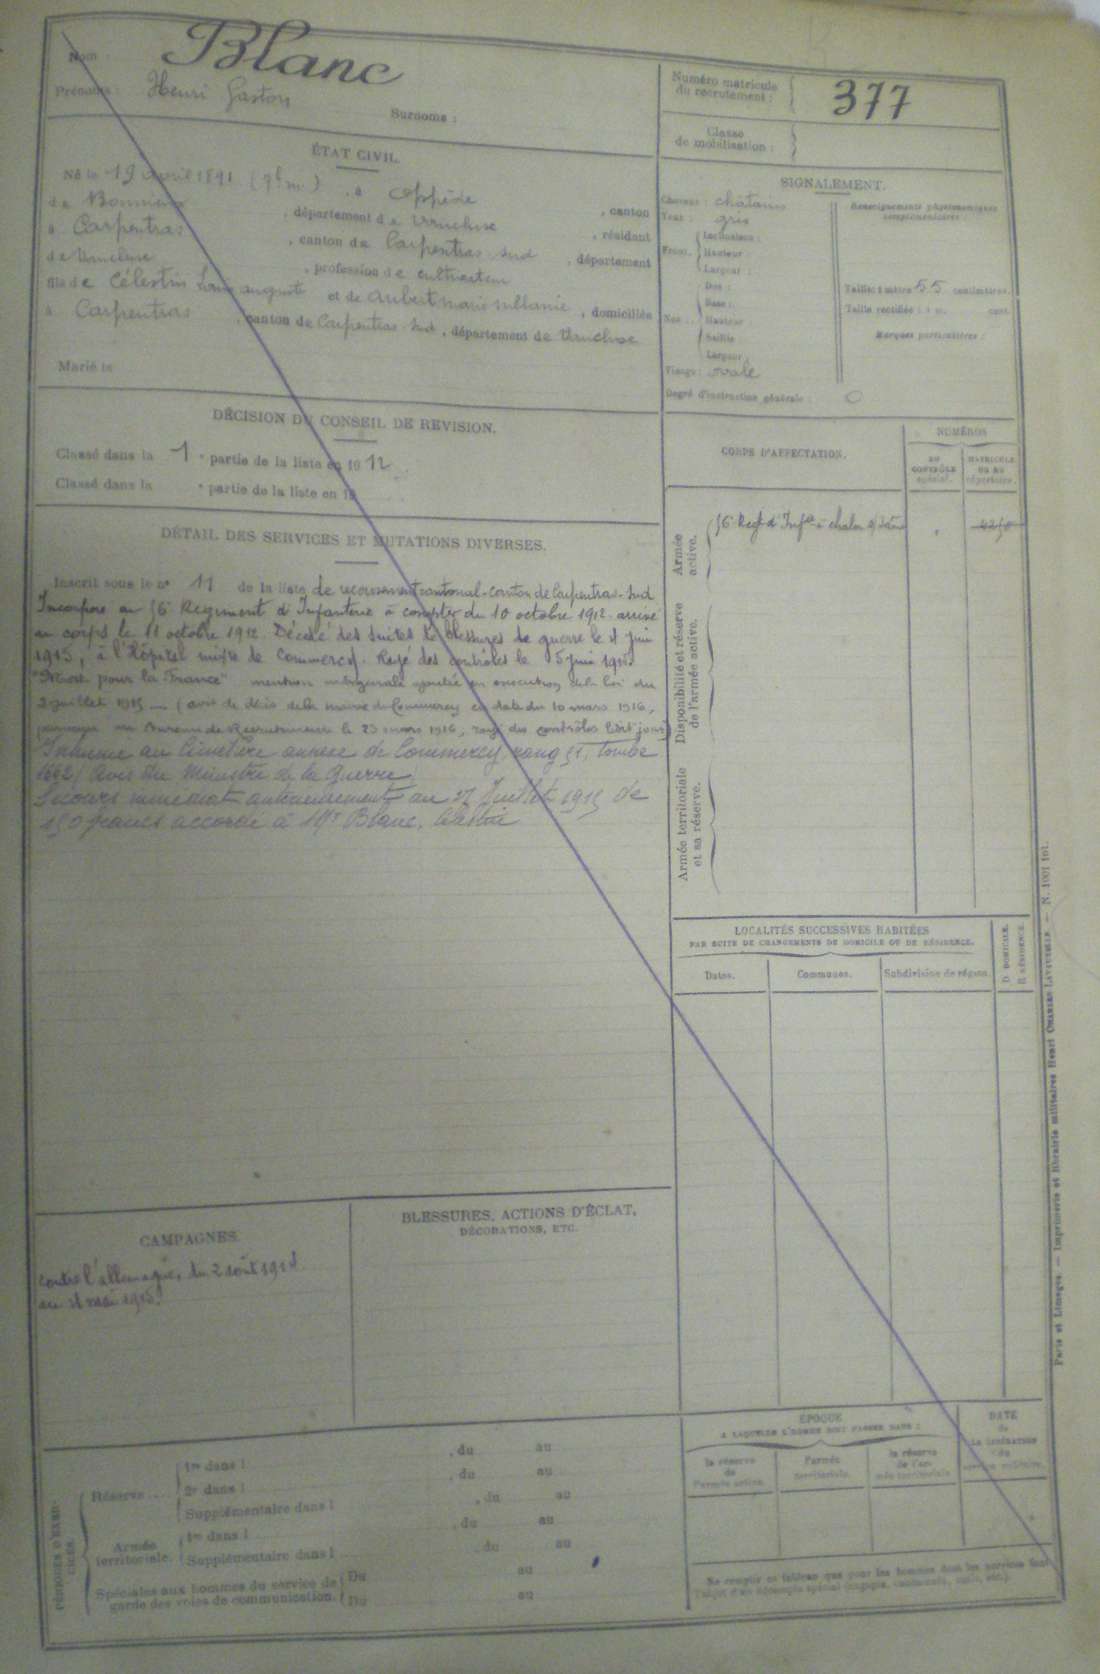 Nom : Blanc
Prénoms : Henri Gaston
Surnoms :
Numéro matricule du recrutement : 377
Classe de mobilisation :
ÉTAT CIVIL.
Né le 19 avril 1891 à Oppède, canton
de Bonnieux, département de Vaucluse, résidant
à Carpentras, canton de Carpentras sud, département
de Vaucluse, profession de cultivateur
fils de Célestin Louis auguste et de Aubert marie mélanie, domiciliés
à Carpentras, canton de Carpentras Sud, département de Vaucluse
Marié le
SIGNALEMENT.
Cheveux : chatains
Yeux : gris
Front. Inclinaison :
Hauteur :
Largeur :
Nez . . Dos :
Base :
Hauteur :
Saillie
Largeur
Visage : ovale
Renseignements physionomiques complémentaires :
Taille : 1 mètre 55 centimètres.
Taille rectifiée : 1 m. cent.
Marques particulières :
Degré d'instruction générale : 0
DÉCISION DU CONSEIL DE REVISION.
Classé dans la 1e partie de la liste en 1912
Classé dans la e partie de la liste en 19
DÉTAIL DES SERVICES ET MUTATIONS DIVERSES.
Inscrit sous le n° 11 de la liste de recensement cantonal - canton de Carpentras - Sud
Incorporé au 56e Régiment d'Infanterie à compter du 10 octobre 1912. arrivé
au corps le 11 octobre 1912. Décédé des suites de blessures de guerre le 4 Juin
1915, à l'Hôpital mixte de Commercy. Rayé des contrôles le 5 juin 1915.
"Mort pour la France" mention marginale ajoutée en exécution de la loi du
2 juillet 1915 — (avis de décès de la mairie de Commercy en date du 10 mars 1916,
au Bureau de Recrutement le 23 mars 1916, rayé des contrôles ledit jour)
Inhumé au Cimetière annexe de Commercy, rang 51, Tombe
1662) Avis du Ministre de la Guerre
Secours immédiat antérieurement au 27 Juillet 1915 de
150 francs accordé à Mr Blanc,
CORPS D'AFFECTATION.
NUMÉROS
AU CONTRÔLE spécial.
MATRICULE OU AU répertoire.
Armée active.
56e Regt d'Infie à chalon s/ Saône
Disponibilité et réserve de l'armée active.
Armée territoriale et sa réserve.
LOCALITÉS SUCCESSIVES HABITÉES
PAR SUITE DE CHANGEMENTS DE DOMICILE OU DE RÉSIDENCE.
Dates.
Communes.
Subdivision de région.
D. DOMICILE.
R. RÉSIDENCE.
CAMPAGNES.
contre l'allemagne, du 2 août 1914
au mai 1915.
BLESSURES, ACTIONS D'ÉCLAT,
DÉCORATIONS, ETC.
PÉRIODES D'EXERCICES.
Réserve . . . . 1re dans l , du au
2e dans l , du au
Supplémentaire dans l , du au
Armée territoriale. 1re dans l , du au
Supplémentaire dans l , du au
Spéciales aux hommes du service de garde des voies de communication. Du au
Du au
ÉPOQUE
A LAQUELLE L'HOMME DOIT PASSER DANS :
la réserve de l'armée active.
l'armée territoriale.
la réserve de l'armée territoriale.
DATE de LA LIBÉRATION du service militaire.
Ne remplir ce tableau que pour les hommes dont les services font
l'objet d'un décompte spécial (engagés, omis, etc.).
Paris et Limoges. — Imprimerie et librairie militaires Henri CHARLES-LAVAUZELLE — N. 1001 101.